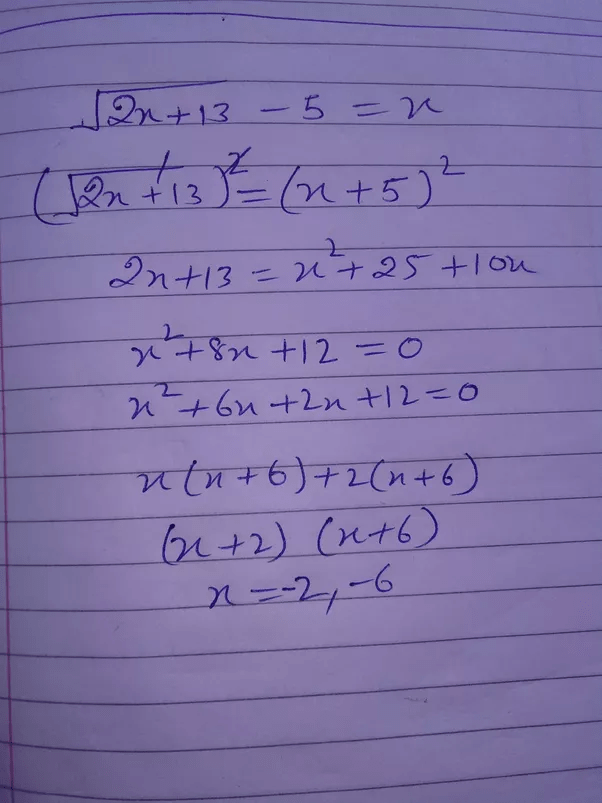 √(2x+13) - 5 = x
(√(2x+13))² = (x+5)²
2x+13 = x²+25+10x
x²+8x+12 = 0
x²+6x+2x+12=0
x(x+6)+2(x+6)
(x+2) (x+6)
x=-2,-6